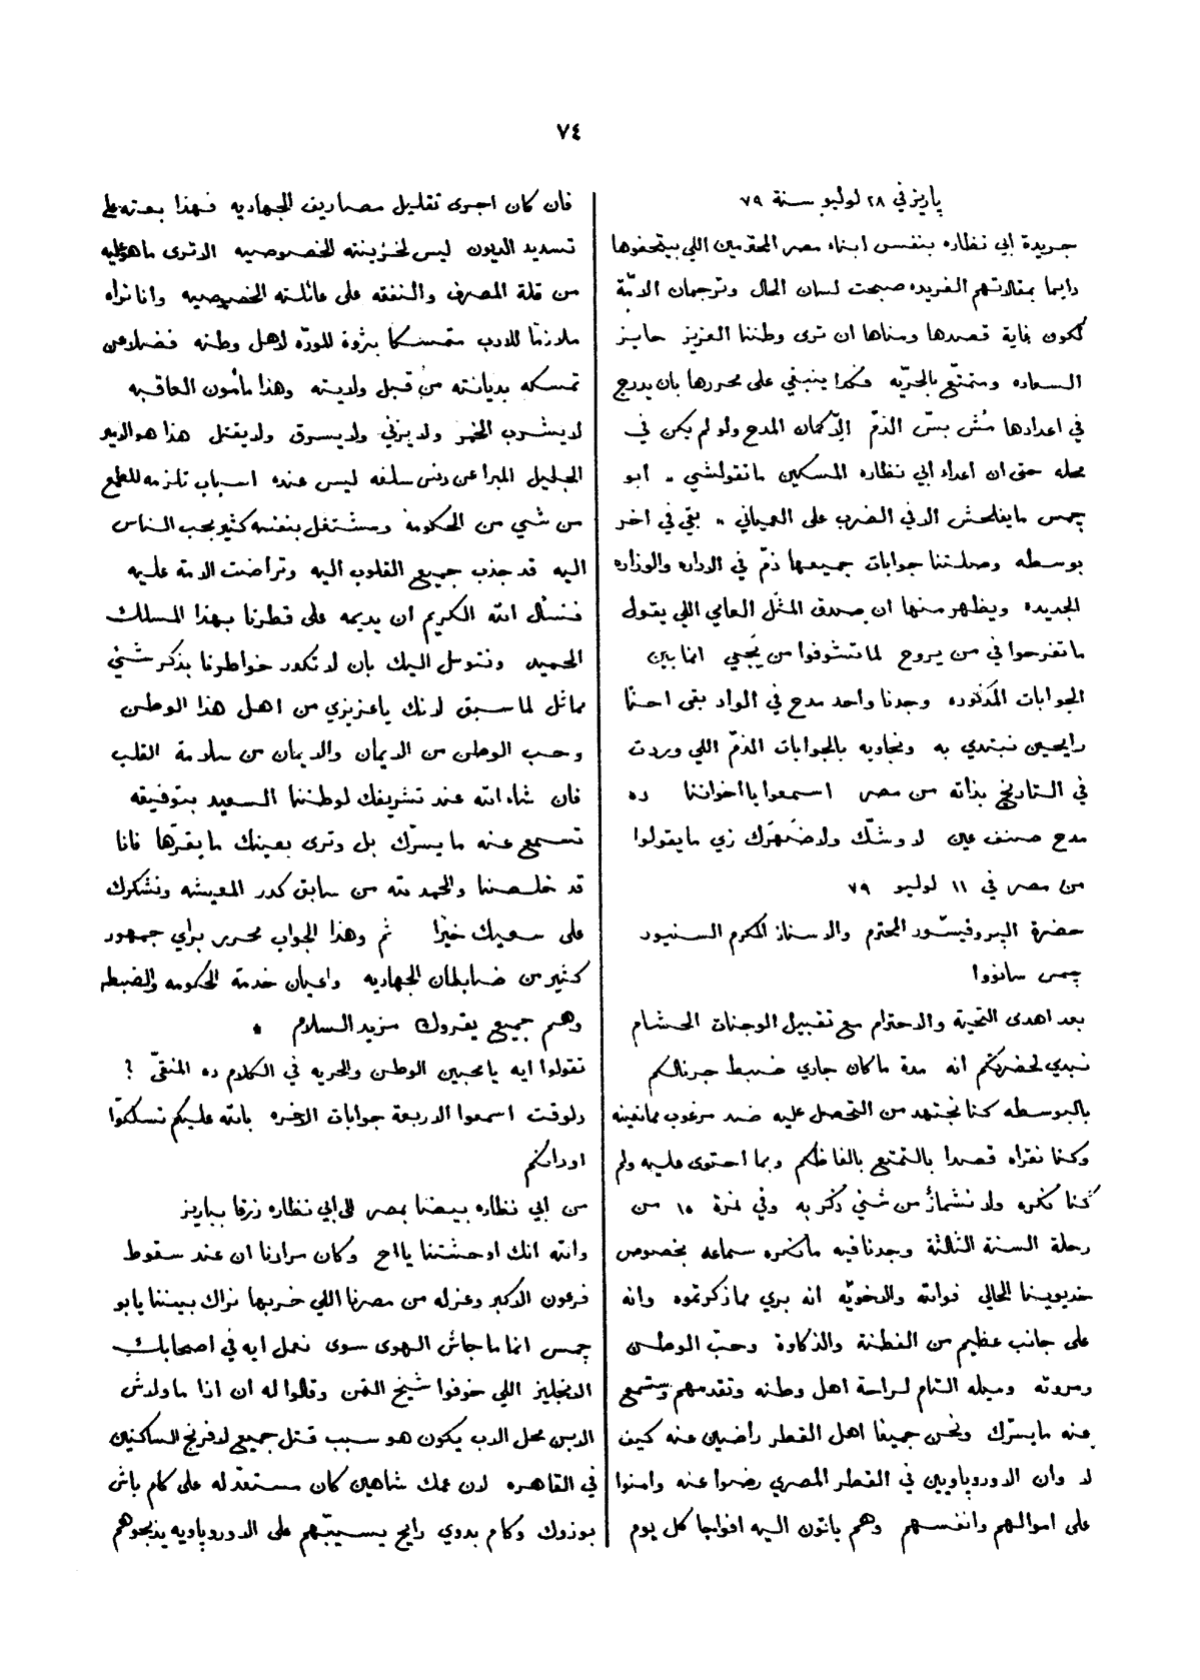 ٧٤
پاريز في ٢٨ لوليو سنة ٧٩
جريدة ابي نظاره بنفس ابناء مصر المحترمين اللي بيتحفوها
دايما بمقالاتهم الفريده صبحت لسان الحال وترجمان الامّة
لكون غاية قصدها ومناها ان ترى وطننا العزيز حايز
السعاده ومتمتّع بالحرّيه فكدا ينبغي على محررها بان يدرج
في اعدادها مُش بسّ الذمّ الاّ كمان المدح ولو لم يكن في
محله حتى ان أعداء ابي نظاره المسكين ما تقولشي ,, ابو
جمس ما يفلحش الا في الضرب على العمياني ,, بقي في اخر
بوسطه وصلتنا جوابات جميعها ذمّ في الاداره والوزاره
الجديده ويظهر منها ان صدق المثل العامي اللي يقول
ما تفرحوا في من يروح لما تشوفوا من يجي انما بين
الجوابات المذكوره وجدنا واحد مدح في الواد بقى احنا
رايحين نبتدي به ونجاوبه بالجوابات الذمّ اللي وردت
في التاريخ بذاته من مصر اسمعوا يا أخواننا ده
مدح صنف عين لا وشّك ولا ضهرك زي ما يقولوا
من مصر في ١١ لوليو ٧٩
حضرة الپروفيسّور المحترم والاستاذ المكرم السنيور
جمس سانووا
بعد اهدى التحية والاحترام مع تقبيل الوجنات الحشام
نبدي لحضرتكم انه مدة ما كان جاري ضبط جرنالكم
بالبوسطه كنا نجتهد من التحصل عليه ضد مرغوب ممانعينه
وكنا نقراه قصدا بالتمتع بالفاظكم وبما احتوى عليه ولم
كنا نكره ولا نشمأز من شئ ذكر به وفي نمرة ١٥ من
رحلة السنة الثالثة وجدنا فيه ما نكره سماعه بخصوص
خديوينا الحالي فوالله والاخويّه انه بري مما ذكرتموه وانه
على جانب عظيم من الفطنة والذكاوة وحبّ الوطن
ومروته وميله التام لراحة اهل وطنه وتقدمهم وستمع
عنه ما يسرّك ونحن جميعا اهل القطر راضين عنه كيف
لا وان الاوروپاويين في القطر المصري رضوا عنه وامنوا
على اموالهم وانفسهم وهم ياتون اليه افواجا كل يوم
فان كان اجرى تقليل مصاريف الجهاديه فهذا بعته على
تسديد الديون ليس لخزينته الخصوصيه الا ترى ما هو عليه
من قلة المصرف والنفقه على عائلته الخصوصيه وانا نراه
ملازما للادب متمسكا بثروة المودّه لاهل وطنه فضلا عن
تمسكه بديانته من قبل ولايته وهذا مأمون العاقبه
لا يشرب الخمر ولا يزني ولا يسرق ولا يقتل هذا هو الامير
الجليل المبرا عن دنس سلفه ليس عنده اسباب تلزمه للطمع
من شي من الحكومة ومشتغل بنفسه كثير بحب الناس
اليه قد جذب جميع القلوب اليه وتراضت الامة عليه
فنسأل الله الكريم ان يديمه على قطرنا بهذا المسلك
الحميد ونتوسل اليك بان لا تكدر خواطرنا بذكر شئ
مماثل لما سبق لانك يا عزيزي من اهل هذا الوطن
وحب الوطن من الايمان والايمان من سلامة القلب
فان شاء الله عند تشريفك لوطننا السعيد بتوفيقه
تسمع عنه ما يسرّك بل وترى بعينك ما يقرّها فانا
قد خلصنا والحمد لله من سابق كدر المعيشه ونشكرك
على سعيك خيرا ثم وهذا الجواب محرر براي جمهور
كثير من ضابطان الجهاديه واعيان خدمة الحكومه والضبطه
وهم جميع يقروك مزيد السلام •
تقولوا ايه يا محبين الوطن والحريه في الكلام ده المنقّى ؟
دلوقت اسمعوا الاربعة جوابات الاخره بالله عليكم تسلكوا
اودانكم
من ابي نظاره بيضا بمصر الى ابي نظاره زرقا بباريز
والله انك اوحشتنا يا اح وكان مرادنا ان عند سقوط
فرعون الاكبر وعزله من مصرنا اللي خربها نراك بيننا يا بو
جمس انما ما جاش الهوى سوى نعمل ايه في اصحابك
الانجليز اللي خوفوا شيخ التمن وقالوا له ان اذا ما ولاش
الابن محل الاب يكون هو سبب قتل جميع الافرنج الساكنين
في القاهره لان عمك شاهين كان مستعد له على كام باش
بوزوك وكام بدوي رايح يسيّبهم على الاوروپاويه يذبحوهم